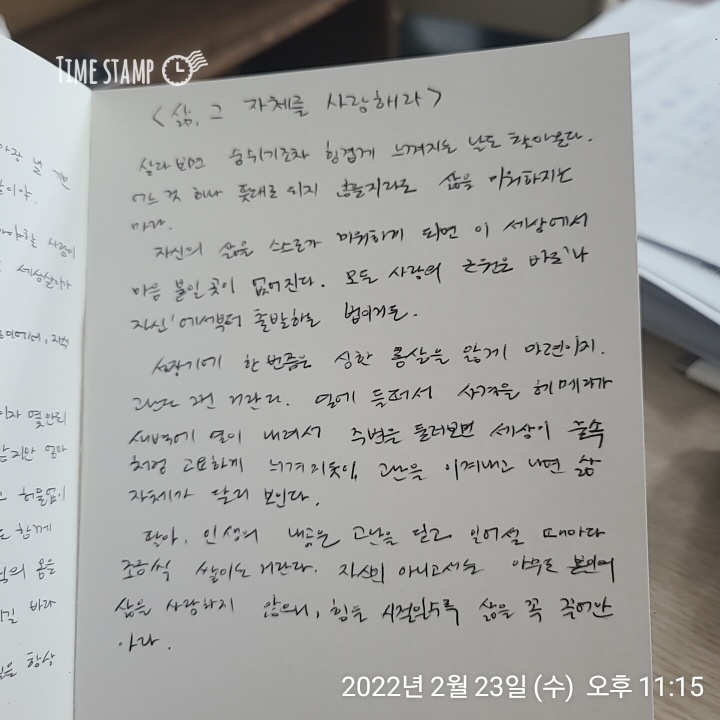 TIME STAMP
<삶, 그 자체를 사랑해라>
살다보면 숨쉬기조차 힘겹게 느껴지는 날도 찾아온다.
어느 것 하나 뜻대로 되지 않을지라도 삶을 미워하지는
마라.
자신의 삶을 스스로가 미워하게 되면 이 세상에서
마음 붙일 곳이 없어진다. 모든 사랑의 근원은 바로 '나
자신'에서부터 출발하는 법이거든.
성장기에 한번쯤은 심한 몸살을 앓게 마련이지.
고난도 그런 거란다. 열에 들떠서 사경을 헤매다가
새벽에 열이 내려서 주변을 둘러보면 세상이 눈속
처럼 고요하게 느껴지듯이, 고난을 이겨내고 나면 삶
자체가 달리 보인다.
딸아, 인생의 내공은 고난을 딛고 일어설 때마다
조금씩 쌓이는 거란다. 자신이 아니고서는 아무도 본인의
삶을 사랑하지 않으니, 힘든 시절일수록 삶을 꼭 끌어안
아라.
세상살이가
몇만리
허물없이
함께
몸을
바라
항상
2022년 2월 23일 (수) 오후 11:15